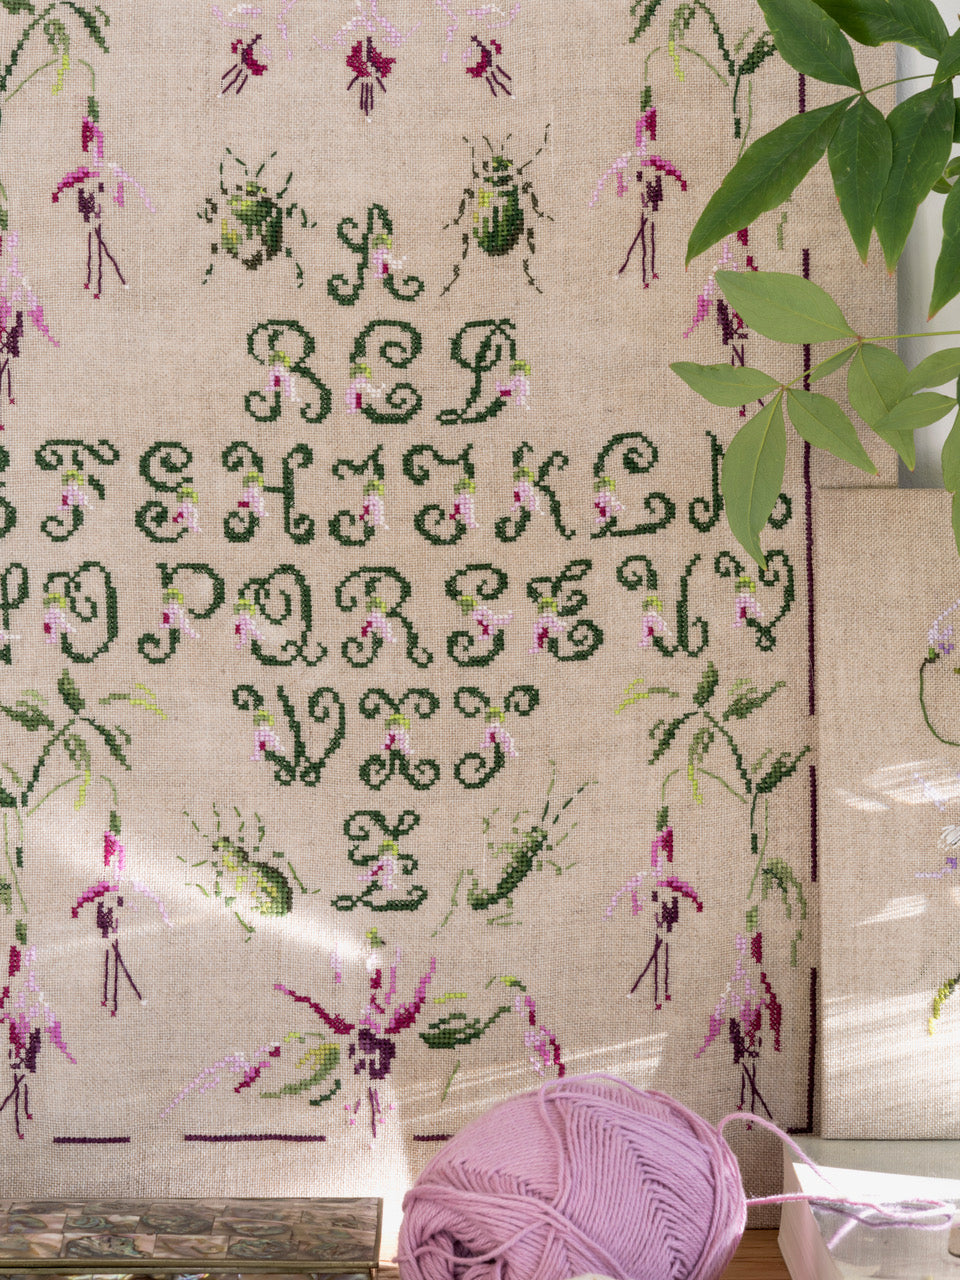 A
B C D
F G H I J K L M
N O P Q R S T U V
W X Y
Z